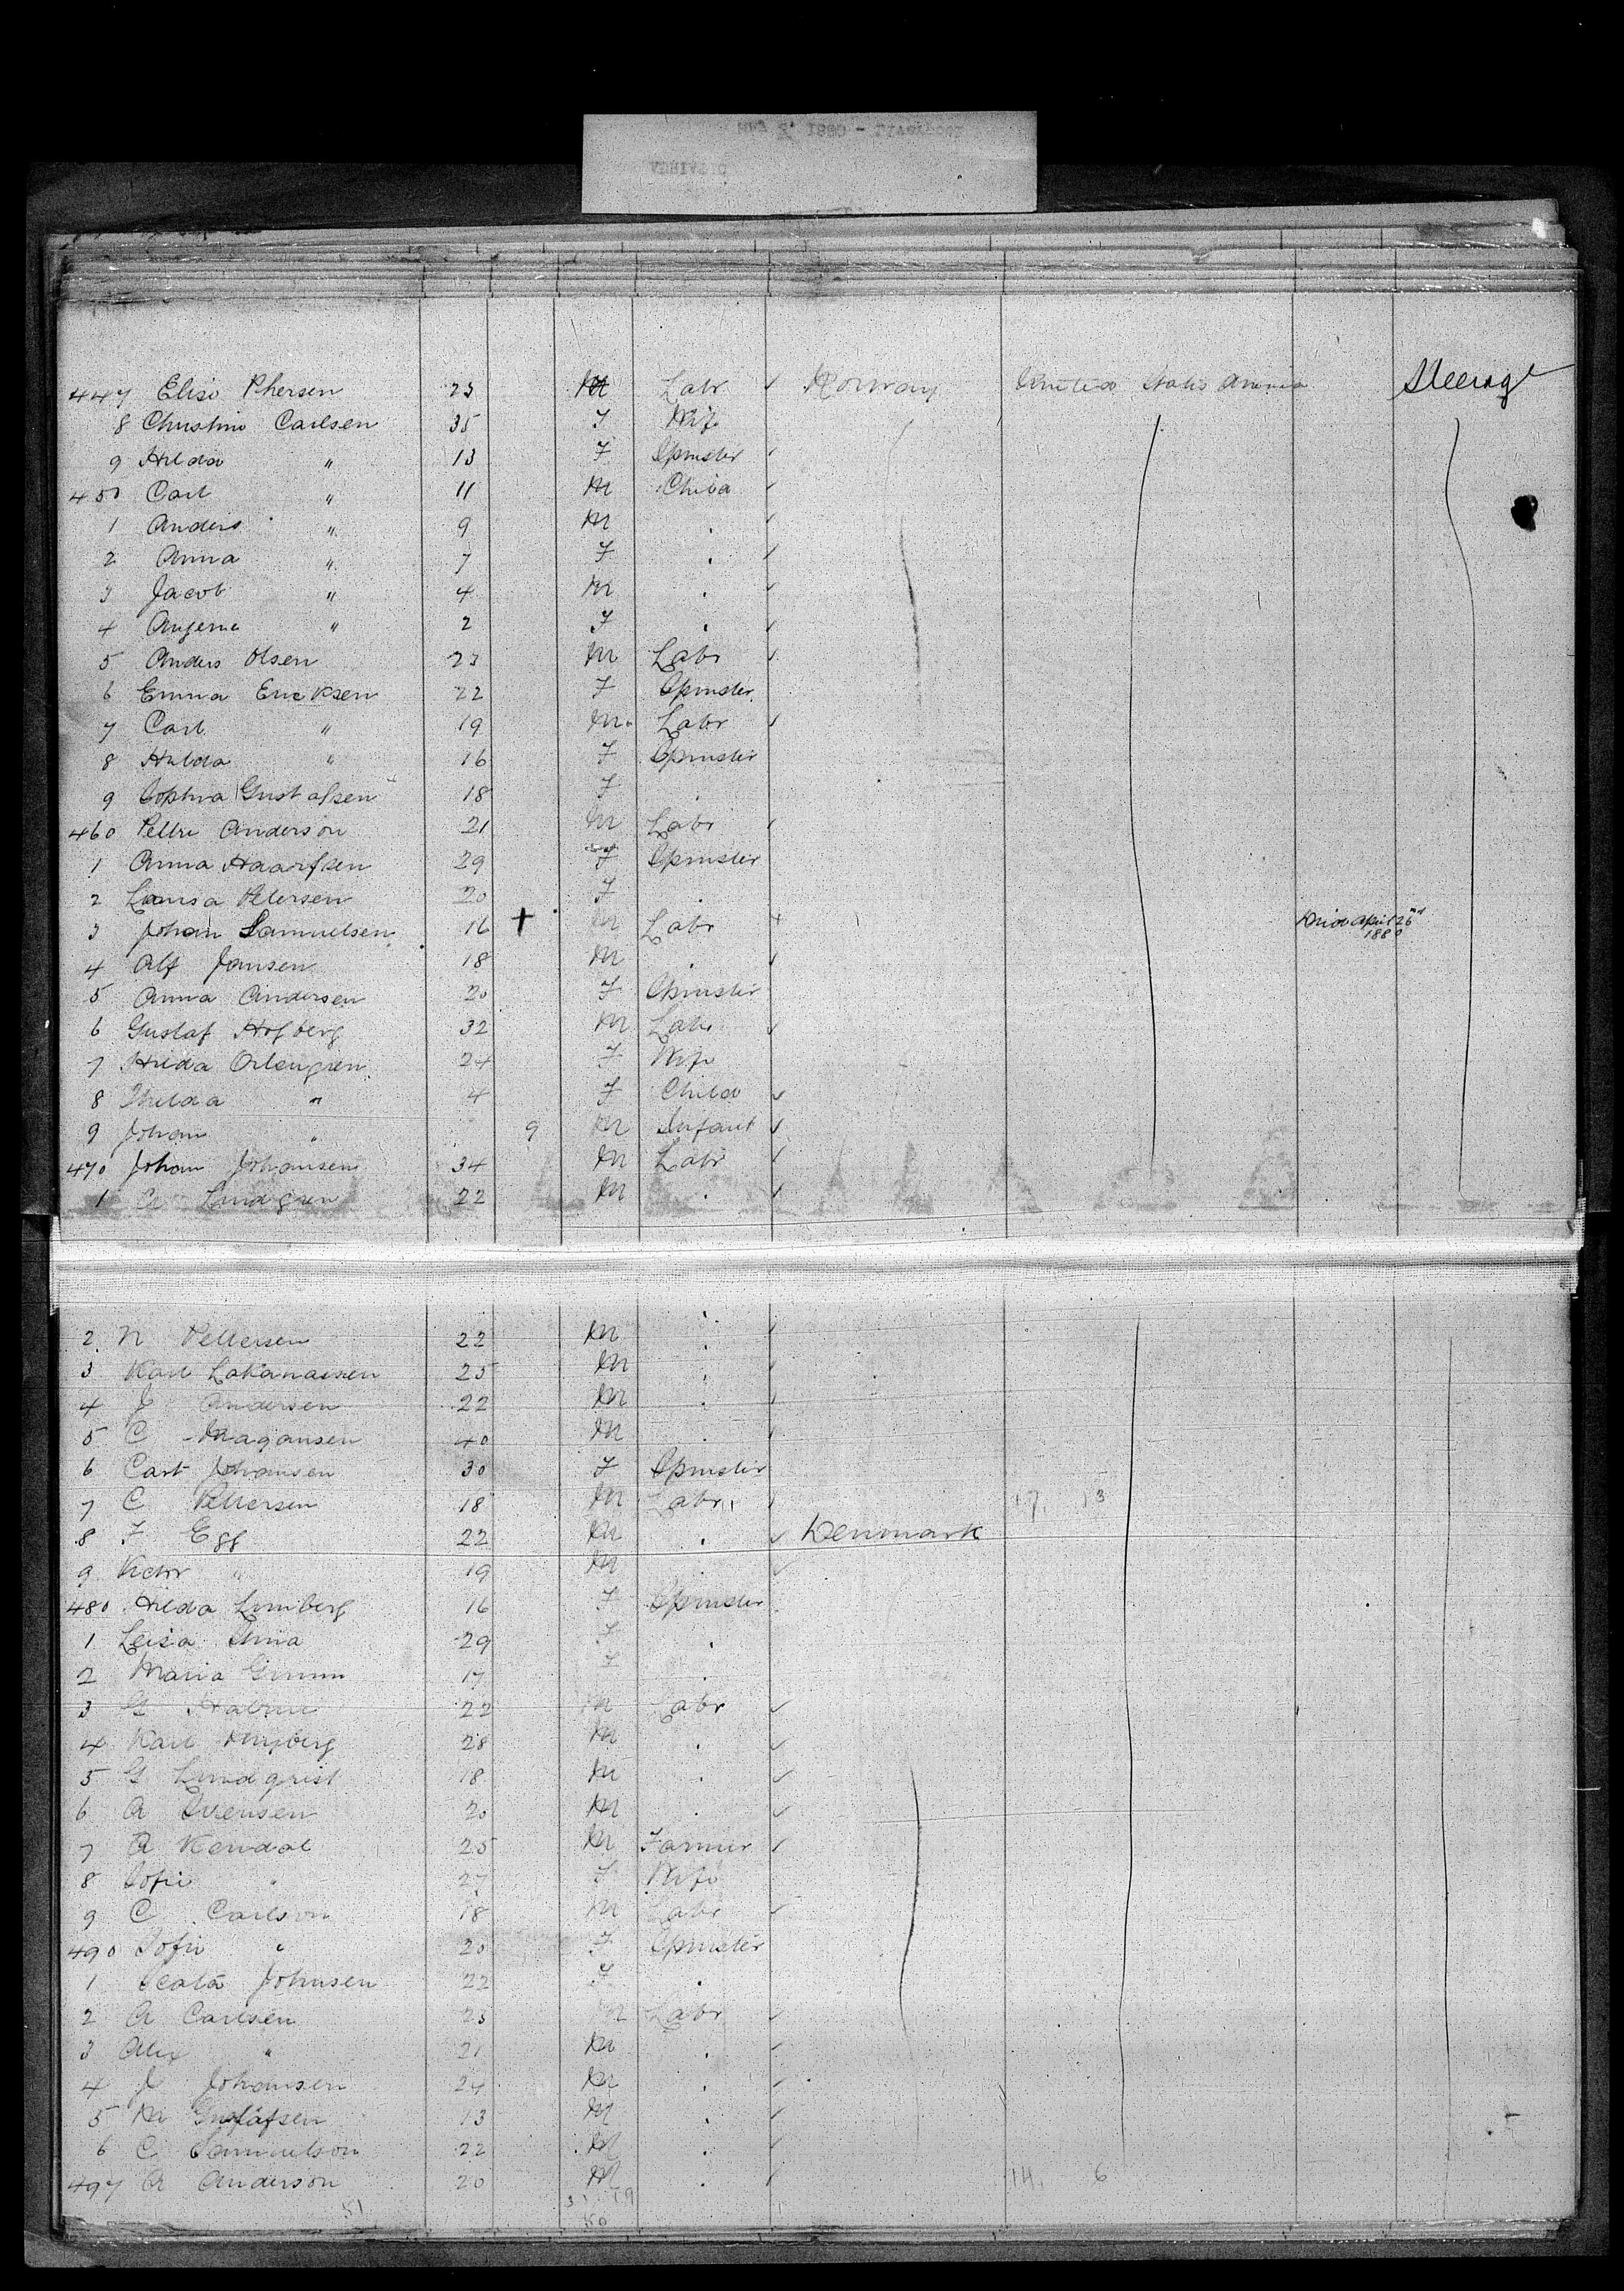 447 Elise Phersen 23 M Labr Norway United States America Steerage
8 Christine Carlsen 35 F Wife
9 Hilda " 13 F Spinster
450 Carl " 11 M Child
1 Anders " 9 M .
2 Anna " 7 F .
3 Jacob " 4 M .
4 " 2 F .
5 Anders Olsen 23 M Labr
6 Emma Ericksen 22 F Spinster
7 Carl " 19 M Labr
8 Hilda " 16 F Spinster
9 Sophia Gustafsen 18 F .
460 Anderson 21 M Labr
1 Anna 29 F Spinster
2 Petersen 20 F .
3 Johan Samuelsen 16 + M Labr + Died April 26 1880
4 Alf Jansen 18 M .
5 Anna Andersen 20 F Spinster
6 Gustaf Hofberg 32 M Labr
7 Hilda 24 F Wife
8 " 4 F Child
9 Johan " 9 M Infant
470 Johan Johansen 34 M Labr
1 A Lindgren 22 M .
2 N Pettersen 22 M .
3 Karl 25 M .
4 J Andersen 22 M .
5 C Magansen 40 M .
6 Johansen 30 F Spinster
7 C Pettersen 18 M Labr 17. 13
8 F Egg 22 M . Denmark
9 Victor " 19 M .
480 Hilda 16 F Spinster
1 29 F .
2 Maria 17 F .
3 G 22 M Labr
4 Karl 28 M .
5 G Lindqrist 18 M .
6 A 20 M .
7 A Kendal 25 M Farmer
8 Sofie " 27 F Wife
9 C Carlson 18 M Labr
490 Sofie " 20 F Spinster
1 Johnsen 22 F .
2 A Carlsen 23 M Labr
3 Alex " 21 M .
4 J Johansen 24 M .
5 M Gustafsen 13 M .
6 C Samuelson 22 M .
497 A Anderson 20 M . 14. 6
51